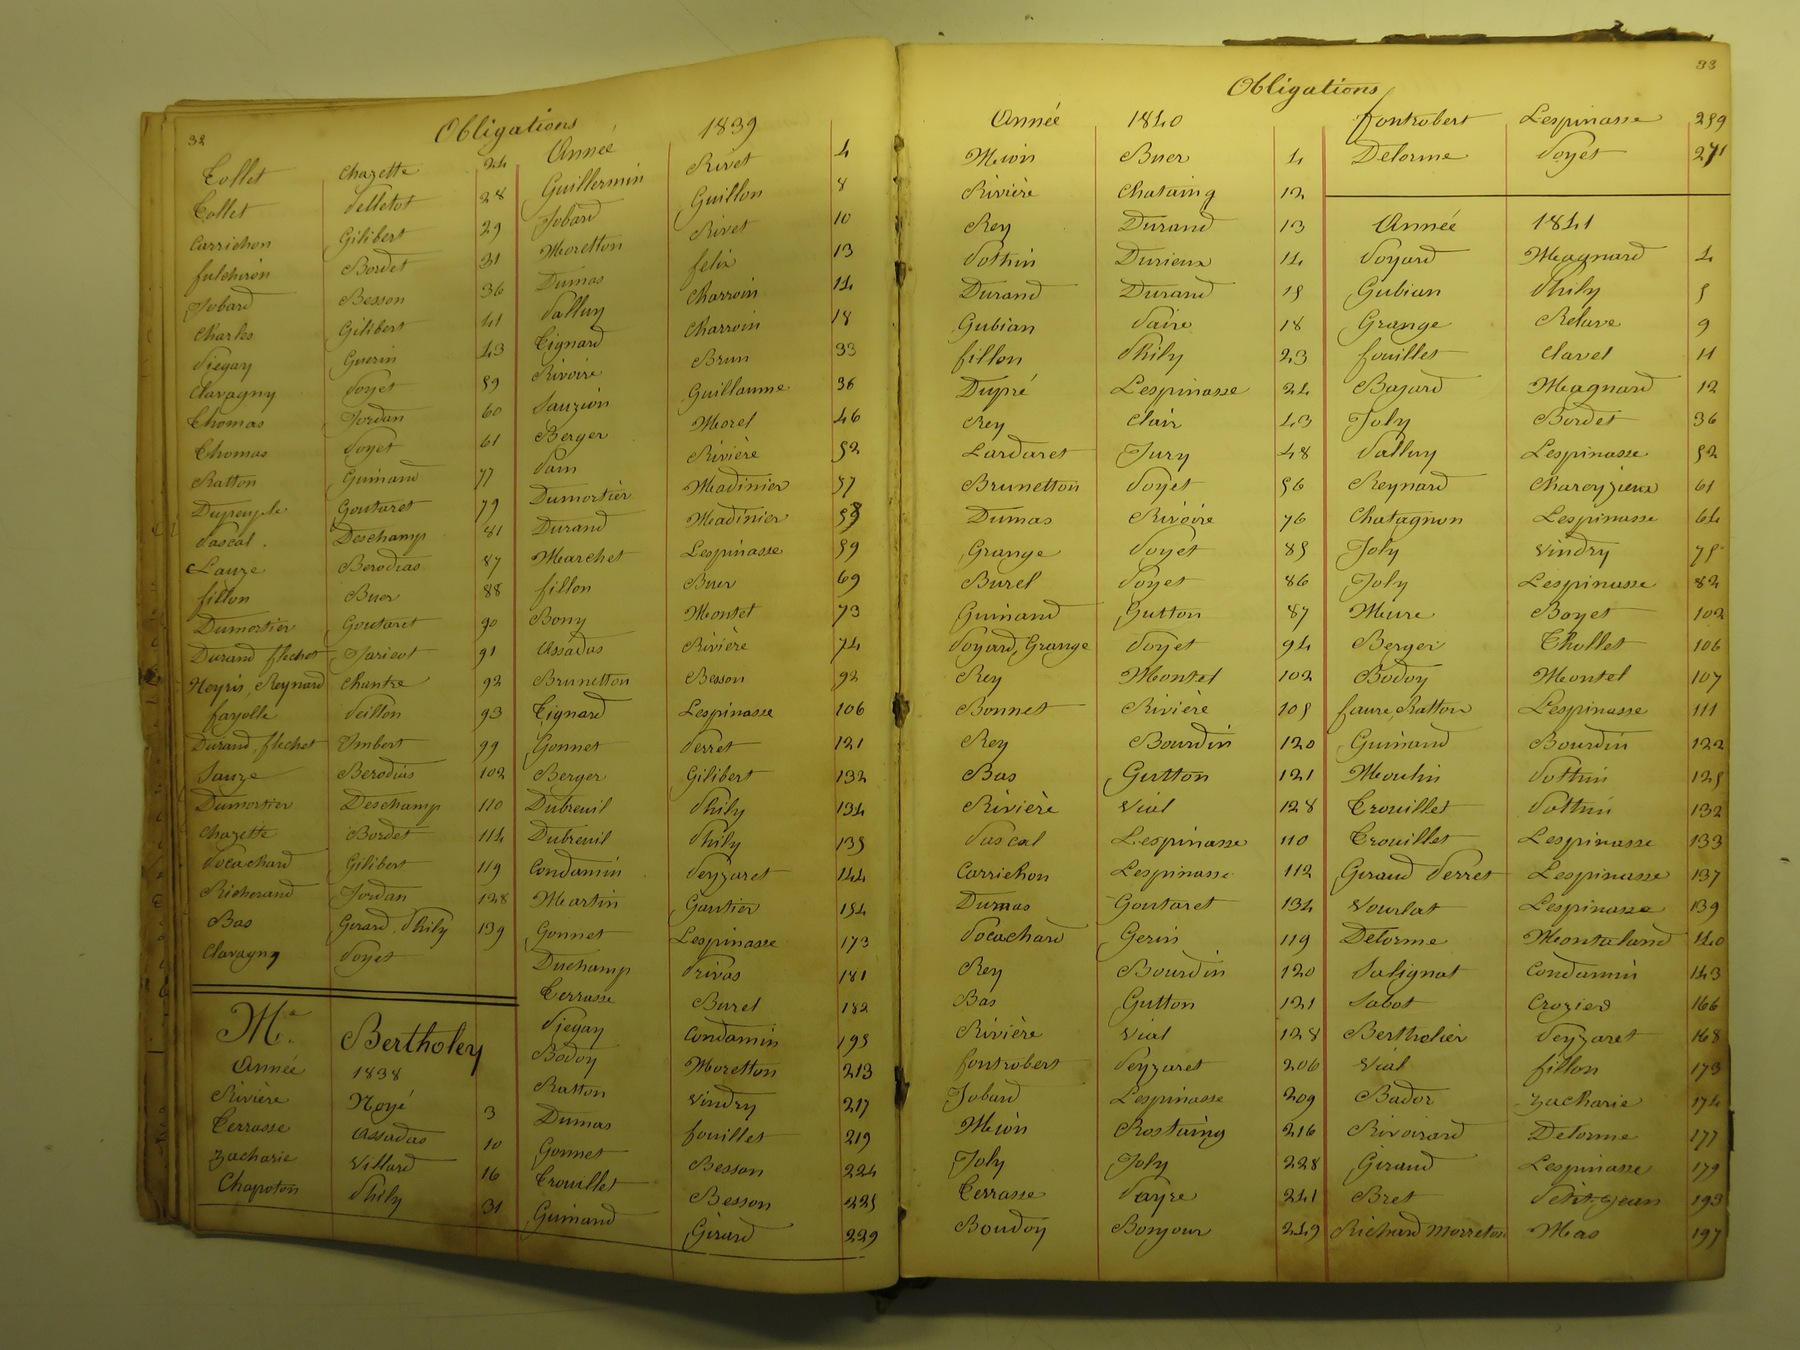 32
Obligations
Collet Chazette 24
Collet Pelletot 28
Carrichon Gilibert 29
fulchiron Bordet 31
Jobard Besson 36
Charles Gilibert 41
Piegay Guerin 43
Clavagny Poyet 59
Thomas Jordan 60
Thomas Poyet 61
Ratton Guinand 77
Dupeuple Goutaret 79
Pascal. Deschamp 81
Lauze Berodias 87
fillon Buer 88
Dumortier Goutaret 90
Durand flechet Jaricot 91
Heyris, Reynard Chantre 92
fayolle Peillon 93
Durand, flechet Imbert 99
Sauze Berodias 102
Dumortier Deschamp 110
Chazette Bordet 114
Pocachard Gilibert 119
Richerand Jordan 128
Bas Girard, Phily 139
Clavagny Poyet
Me. Bertholey
Année 1838
Rivière Noyé 3
Terrasse Assadas 10
Zacharie Villard 16
Chapoton Phily 31
Année 1839
Guillermin Rivet 4
Jobard Guillon 8
Moretton Rivet 10
Dumas felix 13
Valluy Charroin 14
Tignard Charroin 18
Rivoire Brun 33
Sauzion Guillaume 36
Berger Morel 46
Pain Rivière 52
Dumortier Madinier 57
Durand Madinier 58
Marchet Lespinasse 59
fillon Buer 69
Bony Montet 73
Assadas Rivière 74
Brunetton Besson 92
Tignard Lespinasse 106
Gonnet Perret 121
Berger Gilibert 132
Dubreuil Phily 134
Dubreuil Phily 135
Condamin Peyzaret 144
Martin Gautier 154
Gonnet Lespinasse 173
Duchamp Privas 181
Terrasse Burel 182
Piegay Condamin 195
Bodoy Moretton 213
Ratton Vindry 217
Dumas fouillet 219
Gonnet Besson 224
Trouillet Besson 225
Guinand Girard 229
33
Obligations
Année 1840
Mion Buer 4
Rivière Chataing 12
Rey Durand 13
Pothin Durieux 14
Durand Durand 15
Gubian Paire 18
fillon Phily 23
Dupré Lespinasse 24
Rey Clair 43
Lardaret Jury 48
Brunetton Poyet 56
Dumas Rivoire 76
Grange Poyet 85
Burel Poyet 86
Guinand Gutton 87
Poyard, Grange Poyet 94
Rey Montel 102
Bonnet Rivière 105
Rey Bourdin 120
Bas Gutton 121
Rivière Vial 128
Pascal Lespinasse 110
Carrichon Lespinasse 112
Dumas Goutaret 134
Pocachard Gerin 119
Rey Bourdin 120
Bas Gutton 121
Rivière Vial 128
fontrobert Peyzaret 206
Jobard Lespinasse 209
Mion Rostaing 216
Joly Joly 228
Terrasse Payre 241
Boudoy Bonjour 249
fontrobert Lespinasse 259
Delorme Poyet 271
Année 1841
Poyard Magnard 4
Gubian Phily 5
Grange Relave 9
fouillet Clavel 11
Bajard Magnard 12
Joly Bordet 36
Valluy Lespinasse 52
Reynard Chareyzieux 61
Chatagnon Lespinasse 64
Joly Vindry 75
Joly Lespinasse 82
Mure Boyet 102
Berger Thollet 106
Bodoy Montel 107
faure, Ratton Lespinasse 111
Guinand Bourdin 122
Moulin Pothin 125
Trouillet Pothin 132
Trouillet Lespinasse 133
Giraud Perret Lespinasse 137
Vourlat Lespinasse 139
Delorme Montaland 140
Salignat Condamin 143
Sabot Crozier 166
Bertholier Peyzaret 168
Vial fillon 173
Bador Zacharie 174
Rivoirard Delorme 177
Giraud Lespinasse 179
Bret Petit Jean 193
Richard Morreton Mas 197